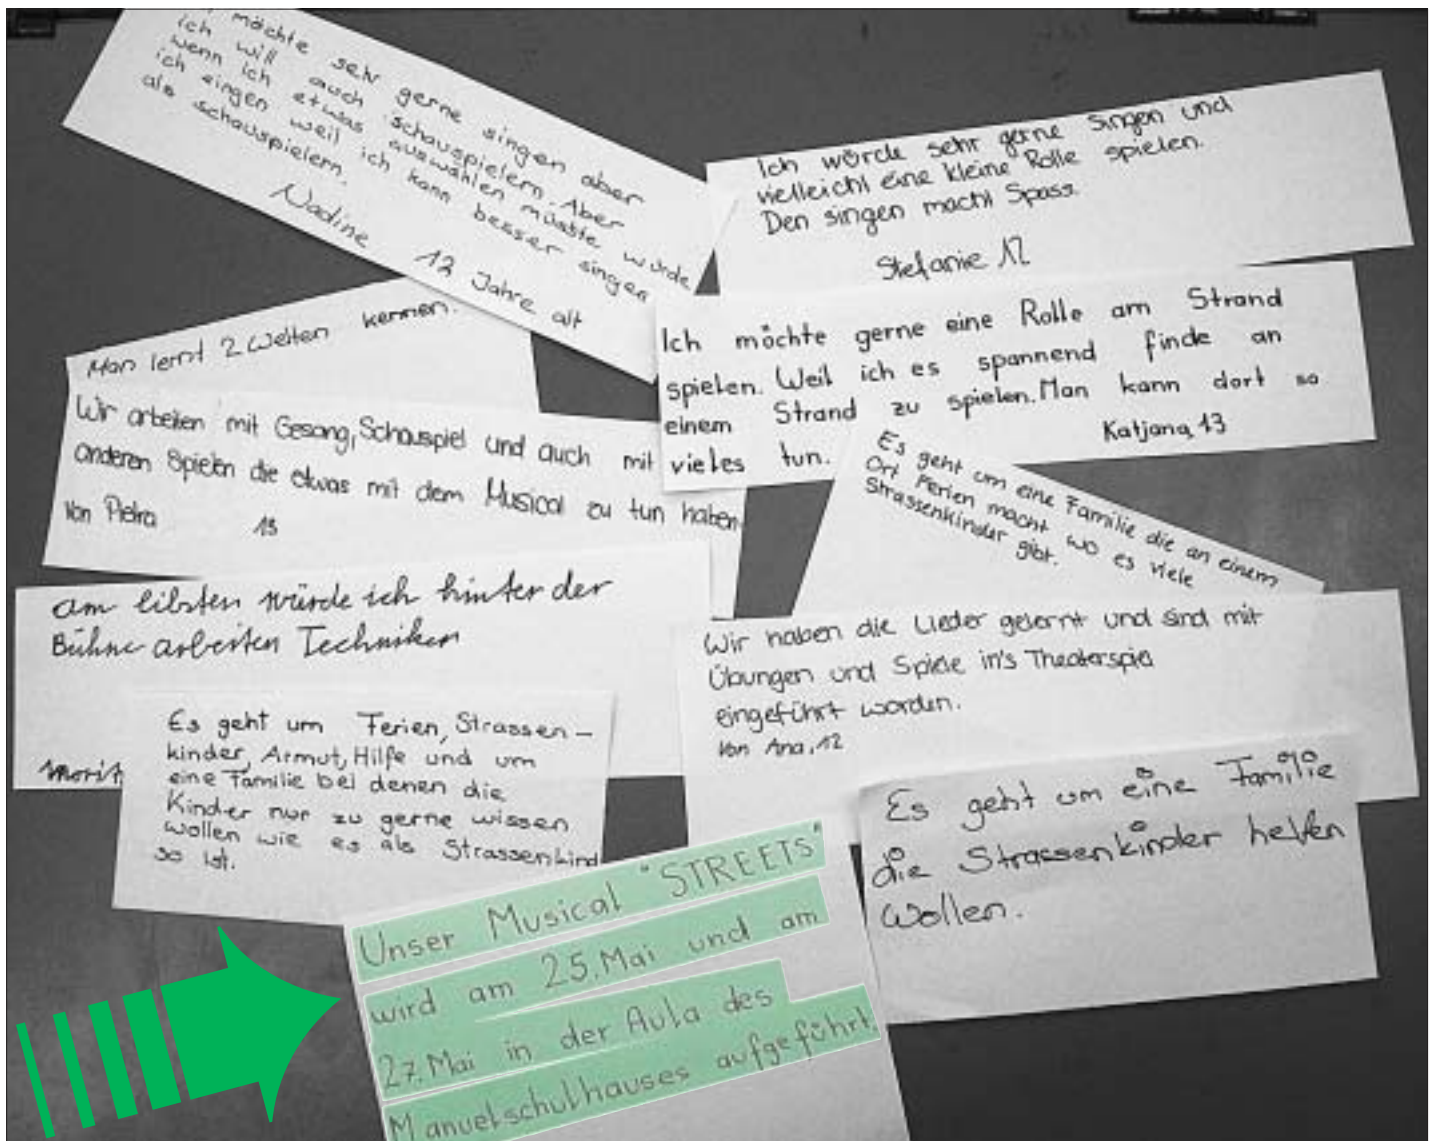 möchte sehr gerne singen aber
ich will auch schauspielern. Aber
wenn ich etwas auswählen müsste würde
ich singen weil ich kann besser singen
als schauspielern.
Nadine 12 Jahre alt
Ich wörde sehr gerne singen und
vielleicht eine kleine Rolle spielen.
Den singen macht Spass.
Stefanie 12
Man lernt 2 Welten kennen.
Ich möchte gerne eine Rolle am Strand
spielen. Weil ich es spannend finde an
einem Strand zu spielen. Man kann dort so
vieles tun.
Katjana, 13
Wir arbeiten mit Gesang, Schauspiel und auch mit
anderen Spielen die etwas mit dem Musical zu tun haben
Von Pietra 13
Es geht um eine Familie die an einem
Ort Ferien macht wo es viele
Strassenkinder gibt.
am libsten würde ich hinter der
Bühne arbeiten Techniker
Morit
Wir haben die Lieder gelernt und sind mit
Übungen und Spiele in's Theaterspiel
eingeführt worden.
Von Ana, 12
Es geht um Ferien, Strassen-
kinder, Armut, Hilfe und um
eine Familie bei denen die
Kinder nur zu gerne wissen
wollen wie es als Strassenkind
so ist.
Es geht um eine Familie
die Strassenkinder helfen
wollen.
Unser Musical "STREETS"
wird am 25. Mai und am
27. Mai in der Aula des
Manuelschulhauses aufgeführt.